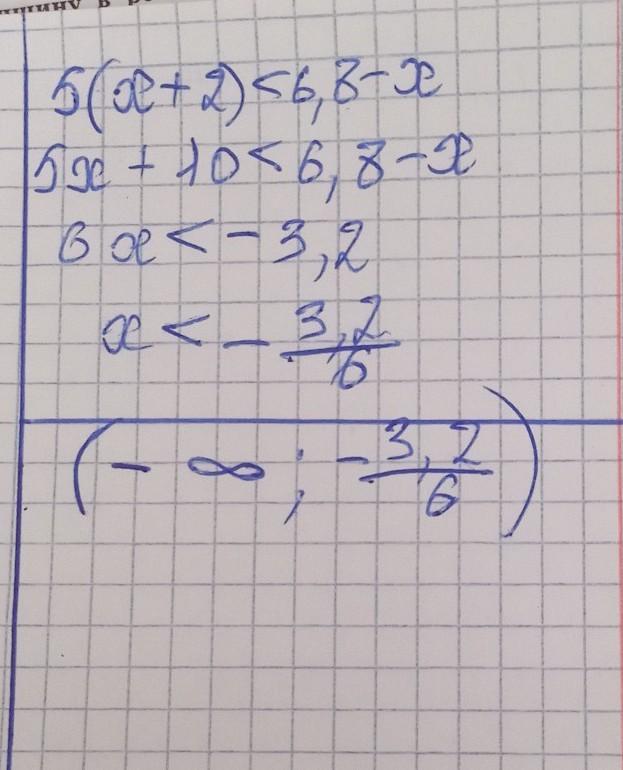 5(x+2)<6,8-x
5x+10<6,8-x
6x<-3,2
x<-3,2/6
(-∞;-3,2/6)